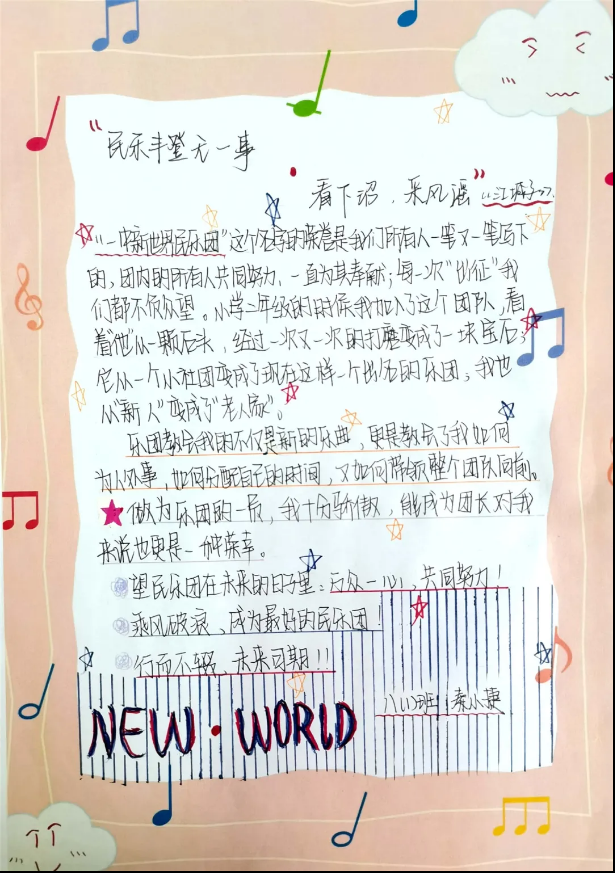 "民乐丰登无一事
看下诏,采风谣"《江城子》
"一中新世界民乐团"这个名字的荣誉是我们所有人一笔又一笔写下
的,团内的所有人共同努力、一直为其奉献;每一次"出征"我
们都不负众望。从学二年级的时候我加入了这个团队,看
着"他"从一颗石头,经过一次又一次的打磨变成了一块宝石;
它从一个小社团变成了现在这样一个出名的乐团,我也
从"新人"变成了"老人家"。
乐团教会我的不仅是新的乐曲,更是教会了我如何
为人处事,如何分配自己的时间,又如何带领整个团队向前。
做为乐团的一员,我十分骄傲,能成为团长对我
来说也更是一种荣幸。
望民乐团在未来的日子里:万众一心,共同努力!
乘风破浪、成为最好的民乐团!
行而不辍,未来可期!!
NEW·WORLD
八(1)班 秦小